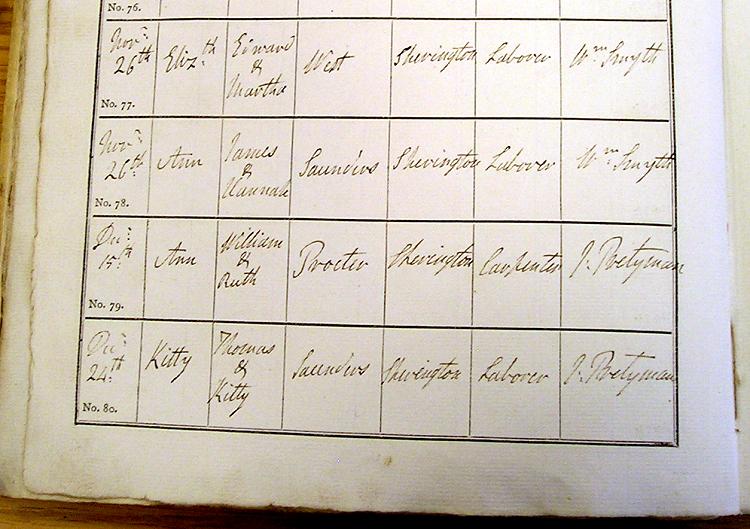 No. 76.
Novr. 26th Elizth Edward & Martha West Shevington Labover Wm Smyth
No. 77.
Novr. 26th Ann James & Hannah Saunders Shevington Labover Wm Smyth
No. 78.
Decr. 15th Ann William & Ruth Procter Shevington Carpenter J. Pretyman
No. 79.
Decr. 24th Kitty Thomas & Kitty Saunders Shevington Labover J. Pretyman
No. 80.